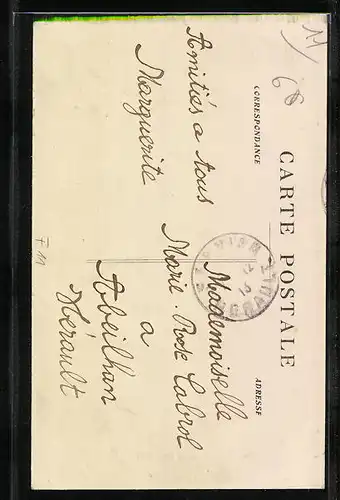 CARTE POSTALE
CORRESPONDANCE
ADRESSE
Amitiés a tous
Marguerite
Mademoiselle
Marie-Rose Cabrol
a
Abeilhan
Hérault